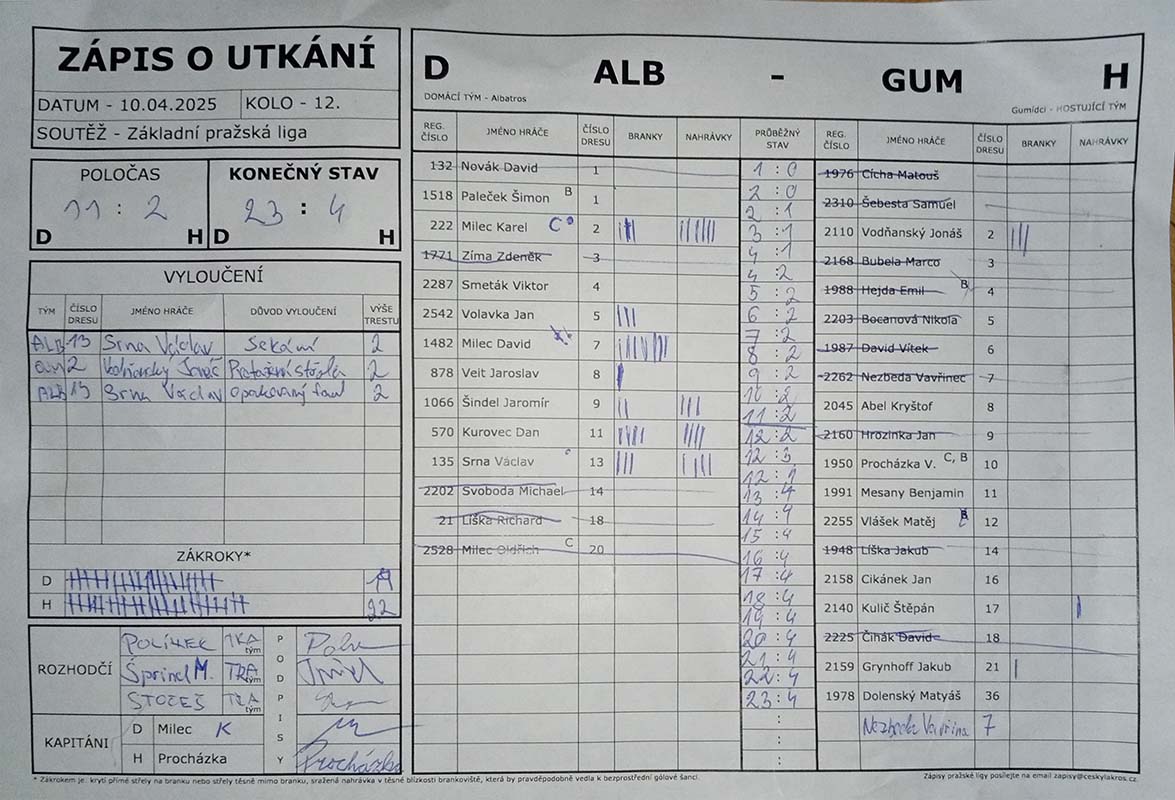 ZÁPIS O UTKÁNÍ
DATUM - 10.04.2025 KOLO - 12.
SOUTĚŽ - Základní pražská liga
POLOČAS KONEČNÝ STAV
11 : 2 23 : 4
D H D H
VYLOUČENÍ
TÝM ČÍSLO DRESU JMÉNO HRÁČE DŮVOD VYLOUČENÍ VÝŠE TRESTU
ALB 13 Srna Václav Sekání 2
GUM 2 2
ALB 13 Srna Václav opakovaný faul 2
ZÁKROKY*
D 19
H 22
ROZHODČÍ
POLÍVEK TRA tým
Šprincl M. TRA tým
STOČES TRA tým
PODPISY
KAPITÁNI
D Milec K
H Procházka Procházka
D ALB - GUM H
DOMÁCÍ TÝM - Albatros Gumídci - HOSTUJÍCÍ TÝM
REG. ČÍSLO JMÉNO HRÁČE ČÍSLO DRESU BRANKY NAHRÁVKY PRŮBĚŽNÝ STAV REG. ČÍSLO JMÉNO HRÁČE ČÍSLO DRESU BRANKY NAHRÁVKY
132 Novák David 1
1518 Paleček Šimon B 1
222 Milec Karel C 2
1771 Zíma Zdeněk 3
2287 Smeták Viktor 4
2542 Volavka Jan 5
1482 Milec David 7
878 Veit Jaroslav 8
1066 Šindel Jaromír 9
570 Kurovec Dan 11
135 Srna Václav 13
2202 Svoboda Michael 14
21 Líška Richard 18
2528 Milec Oldřich C 20
1 : 0
2 : 0
2 : 1
3 : 1
4 : 1
4 : 2
5 : 2
6 : 2
7 : 2
8 : 2
9 : 2
10 : 2
11 : 2
12 : 2
12 : 3
12 : 4
13 : 4
14 : 4
15 : 4
16 : 4
17 : 4
18 : 4
19 : 4
20 : 4
21 : 4
22 : 4
23 : 4
:
:
:
1976 Cícha Matouš
2310 Šebesta Samuel
2110 Vodňanský Jonáš 2
2168 Bubela Marco 3
1988 Hejda Emil B 4
2203 Bocanová Nikola 5
1987 David Vítek 6
2262 Nezbeda Vavřinec 7
2045 Abel Kryštof 8
2160 Hrozinka Jan 9
1950 Procházka V. C, B 10
1991 Mesany Benjamin 11
2255 Vlášek Matěj B 12
1948 Líška Jakub 14
2158 Cikánek Jan 16
2140 Kulič Štěpán 17
2225 Čihák David 18
2159 Grynhoff Jakub 21
1978 Dolenský Matyáš 36
Nezbeda 7
* Zákrokem je: krytí přímé střely na branku nebo střely těsně mimo branku, sražená nahrávka v těsné blízkosti brankoviště, která by pravděpodobně vedla k bezprostřední gólové šanci.
Zápisy pražské ligy posílejte na email zapisy@ceskylakros.cz.